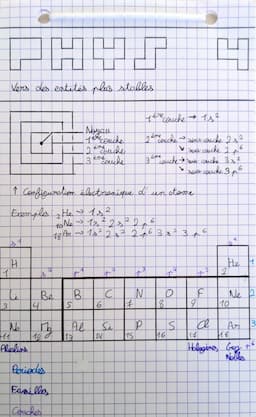 PHYS 4
Vers des entités plus stables
Noyau
1ère couche
2ème couche
3ème couche
1ère couche → 1s²
2ème couche → sous couche 2s²
↘ sous couche 2p⁶
3ème couche → sous couche 3s²
↘ sous couche 3p⁶
↑ Configuration électronique d'un atome
Exemples ₂He → 1s²
₁₀Ne → 1s² 2s² 2p⁶
₁₈Ar → 1s² 2s² 2p⁶ 3s² 3p⁶
s¹
H
1
s² p¹ p² p³ p⁴ p⁵
He 1
2
Li Be B C N O F Ne 2
3 4 5 6 7 8 9 10
Na Mg Al Si P S Cl Ar 3
11 12 13 14 15 16 17 18
Alcalins
Halogènes
Gaz p⁶
Nobles
Périodes
Familles
Couches